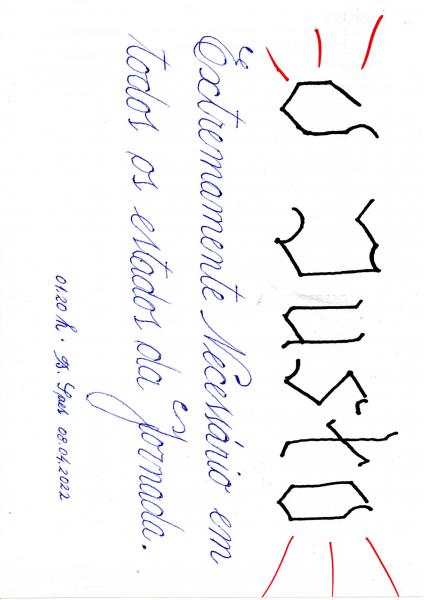 O Justo
é Extremamente Necessário em
todos os estados da Jornada.
01.20 h. 08.04.2022